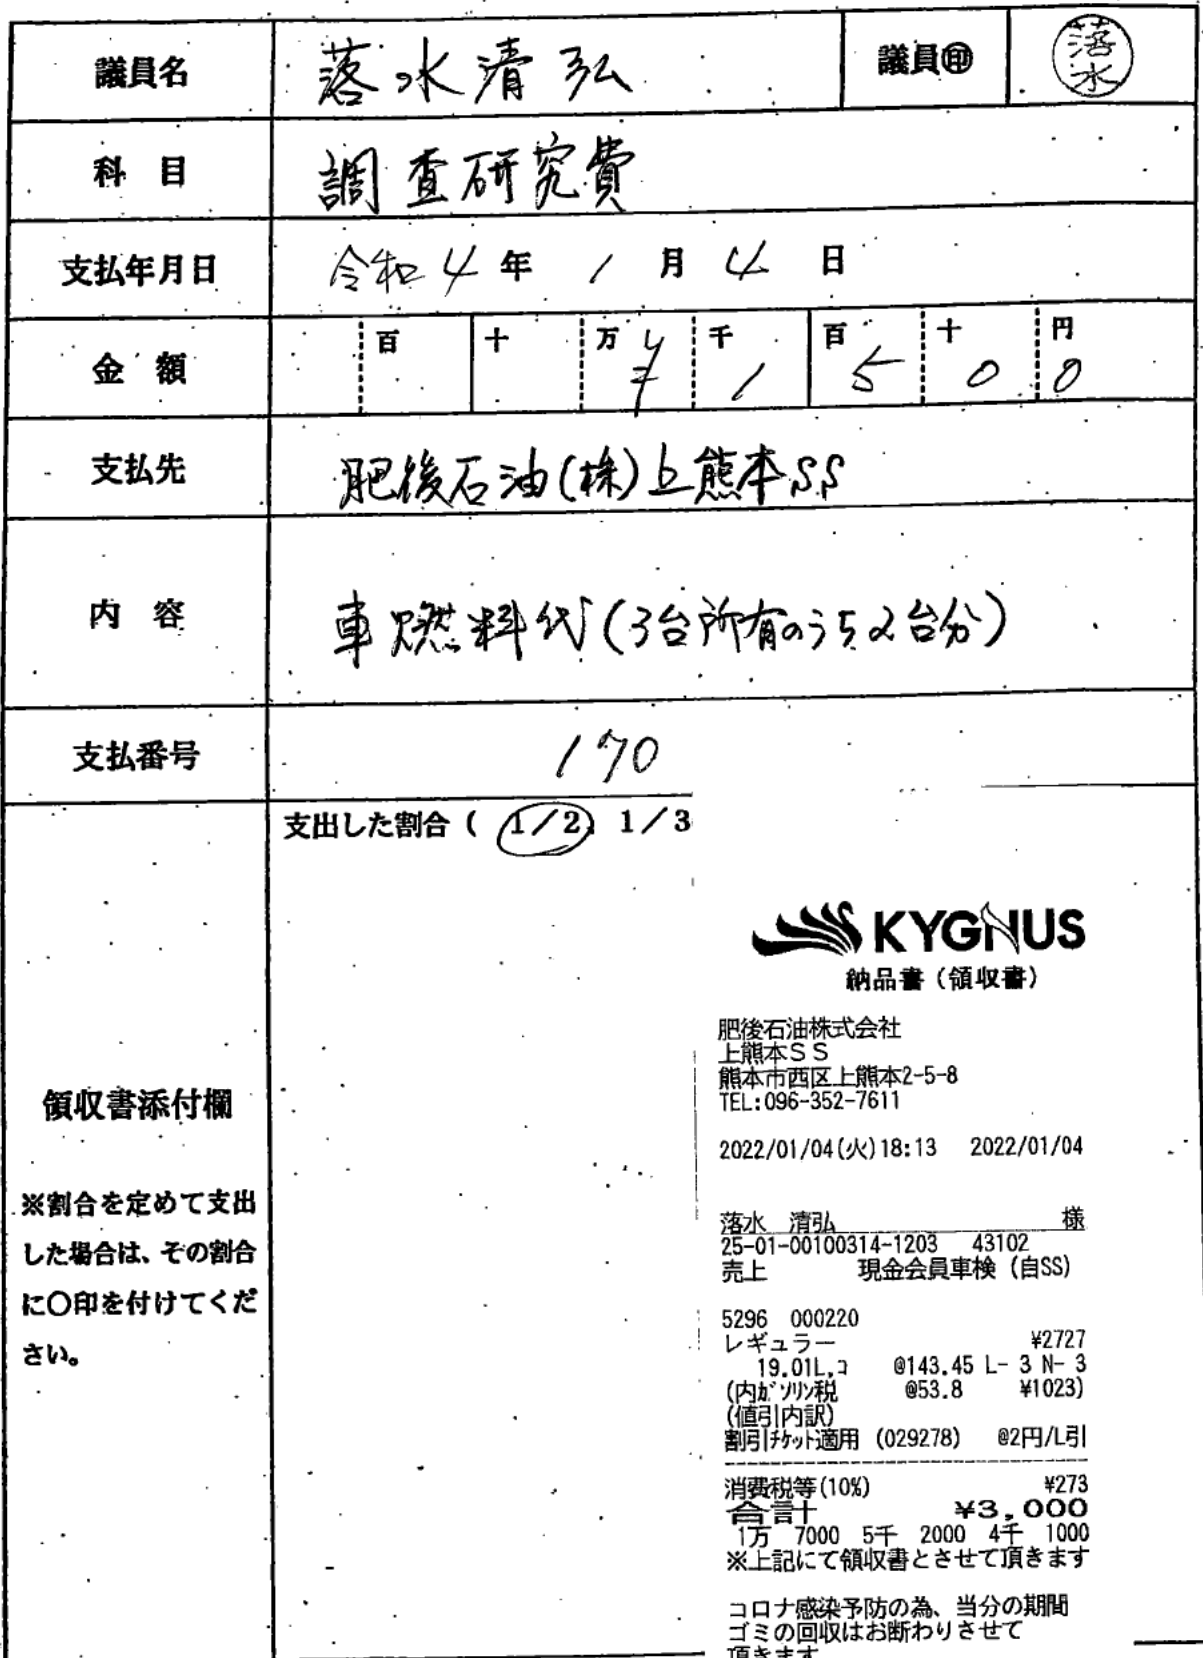 議員名 落水清弘 議員㊞ 落水
科 目 調査研究費
支払年月日 令和4年1月4日
金 額 百 十 万 ¥ 千 1 百 5 十 0 円 0
支払先 肥後石油(株)上熊本SS
内 容 車燃料代(3台所有のうち2台分)
支払番号 170
支出した割合 ( 1/2, 1/3
KYGNUS
納品書(領収書)
肥後石油株式会社
上熊本SS
熊本市西区上熊本2-5-8
TEL:096-352-7611
2022/01/04(火)18:13 2022/01/04
落水 清弘 様
25-01-00100314-1203 43102
売上 現金会員車検(自SS)
5296 000220
レギュラー ¥2727
19.01L,コ @143.45 L- 3 N- 3
(内ガソリン税 @53.8 ¥1023)
(値引内訳)
割引チケット適用 (029278) @2円/L引
消費税等(10%) ¥273
合計 ¥3,000
1万 7000 5千 2000 4千 1000
※上記にて領収書とさせて頂きます
コロナ感染予防の為、当分の期間
ゴミの回収はお断わりさせて
頂きます
領収書添付欄
※割合を定めて支出
した場合は、その割合
に〇印を付けてくだ
さい。